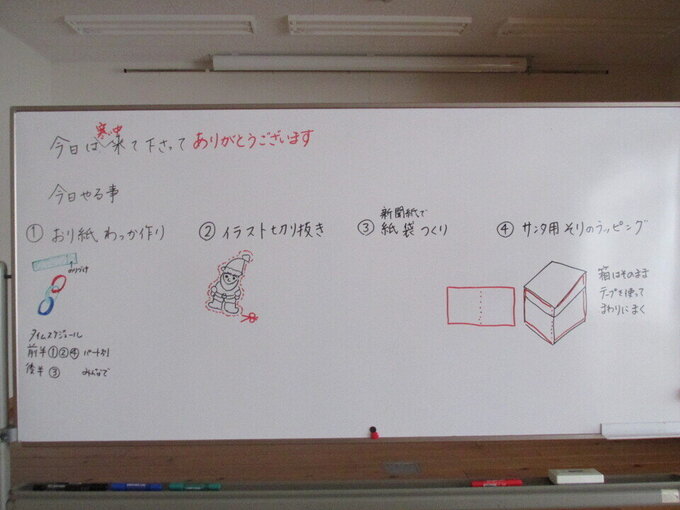 今日は寒い中来て下さってありがとうございます
今日やる事
① おり紙 わっか作り
のりづけ
② イラスト切り抜き
③ 新聞紙で
紙袋つくり
④ サンタ用 そりのラッピング
箱はそのまま
テープを使って
まわりにまく
タイムスケジュール
前半①②④ パート別
後半③ みんなで